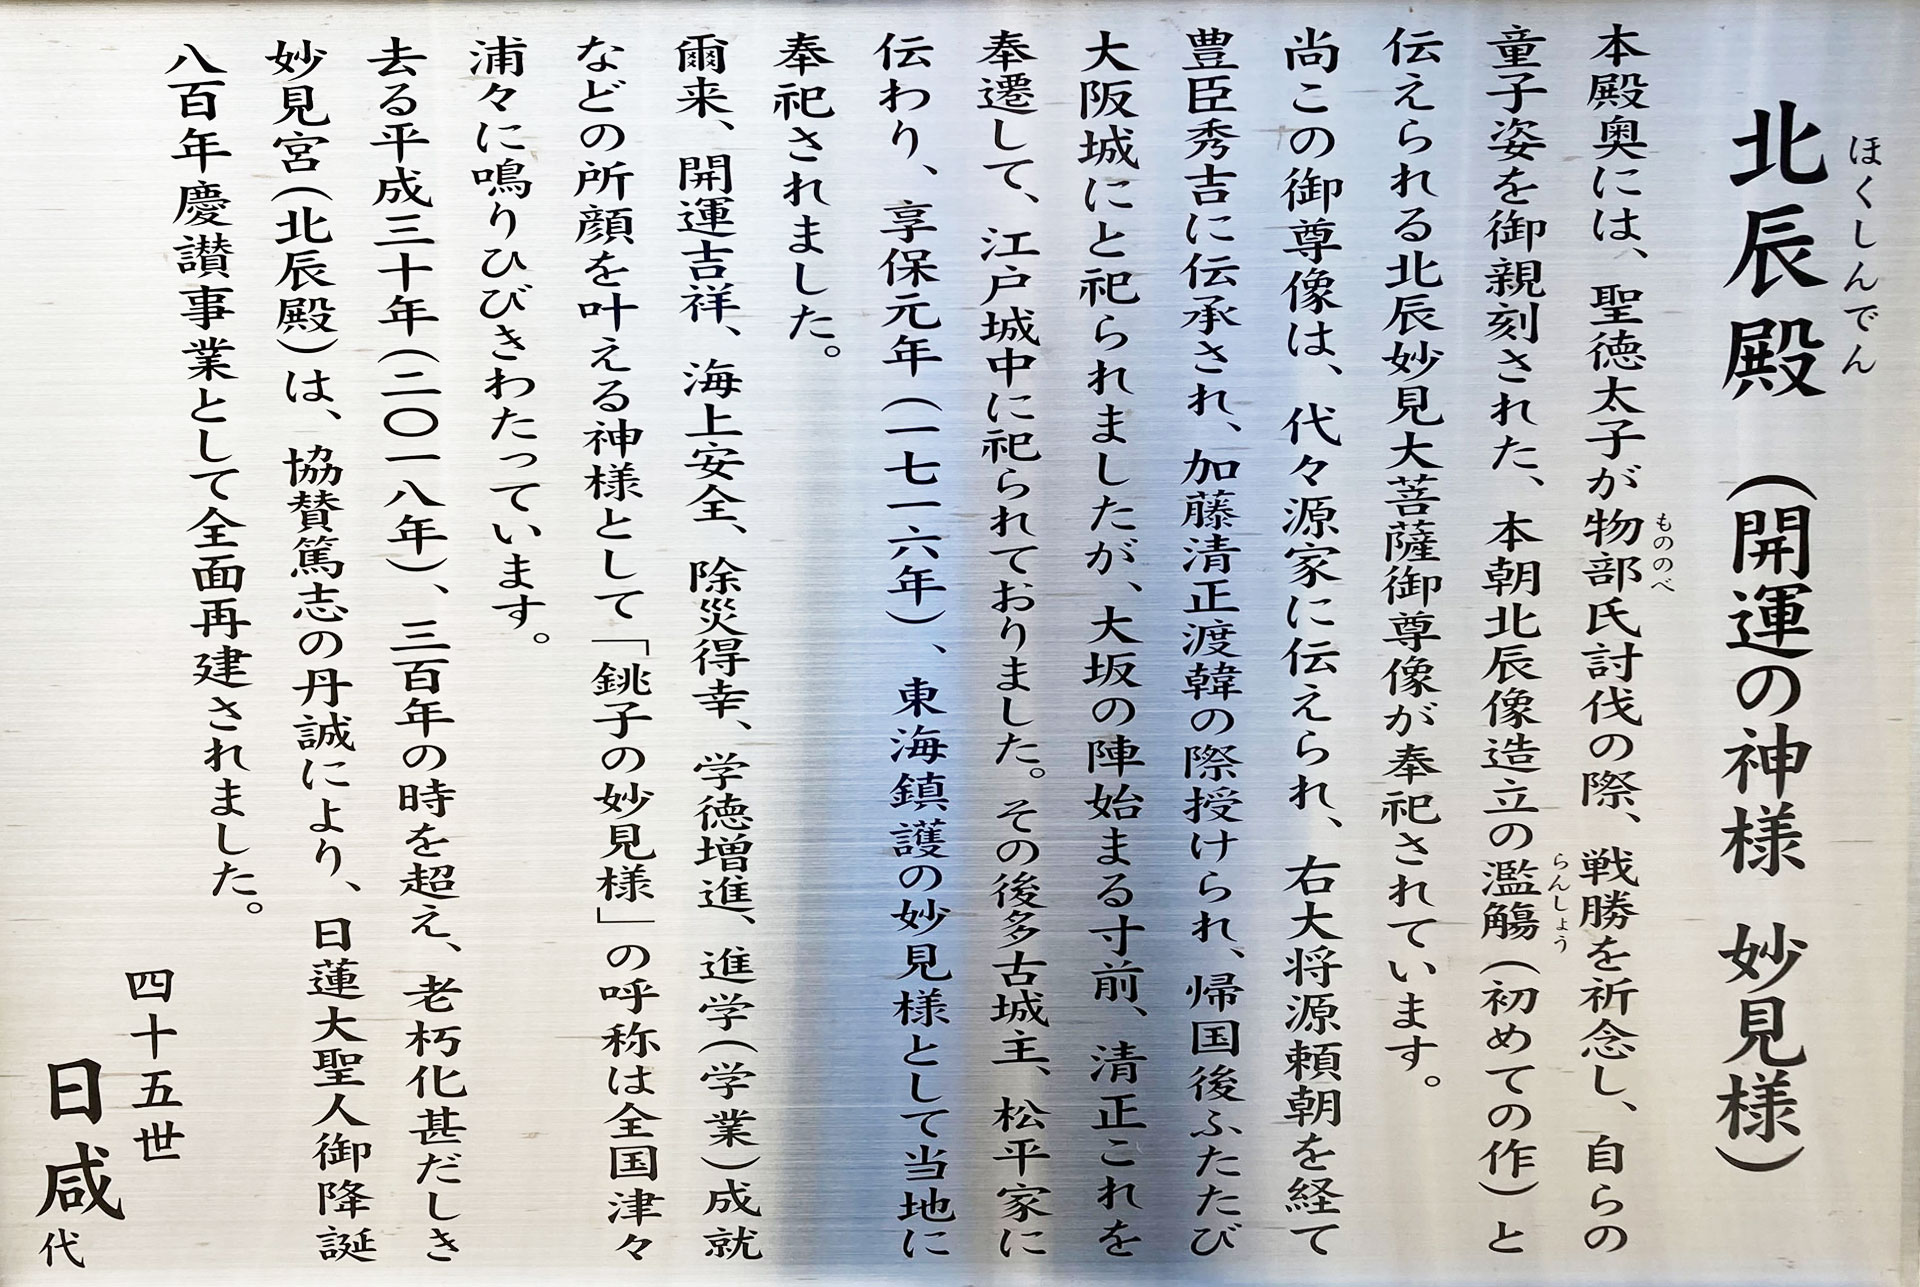 北辰殿（開運の神様 妙見様）
ほくしんでん
本殿奥には、聖徳太子が物部氏討伐の際、戦勝を祈念し、自らの
もののべ
童子姿を御親刻された、本朝北辰像造立の濫觴（初めての作）と
らんしょう
伝えられる北辰妙見大菩薩御尊像が奉祀されています。
尚この御尊像は、代々源家に伝えられ、右大将源頼朝を経て
豊臣秀吉に伝承され、加藤清正渡韓の際授けられ、帰国後ふたたび
大阪城にと祀られましたが、大坂の陣始まる寸前、清正これを
奉遷して、江戸城中に祀られておりました。その後多古城主、松平家に
伝わり、享保元年（一七一六年）、東海鎮護の妙見様として当地に
奉祀されました。
爾来、開運吉祥、海上安全、除災得幸、学徳増進、進学（学業）成就
などの所願を叶える神様として「銚子の妙見様」の呼称は全国津々
浦々に鳴りひびきわたっています。
去る平成三十年（二〇一八年）、三百年の時を超え、老朽化甚だしき
妙見宮（北辰殿）は、協賛篤志の丹誠により、日蓮大聖人御降誕
八百年慶讃事業として全面再建されました。
四十五世
日咸代